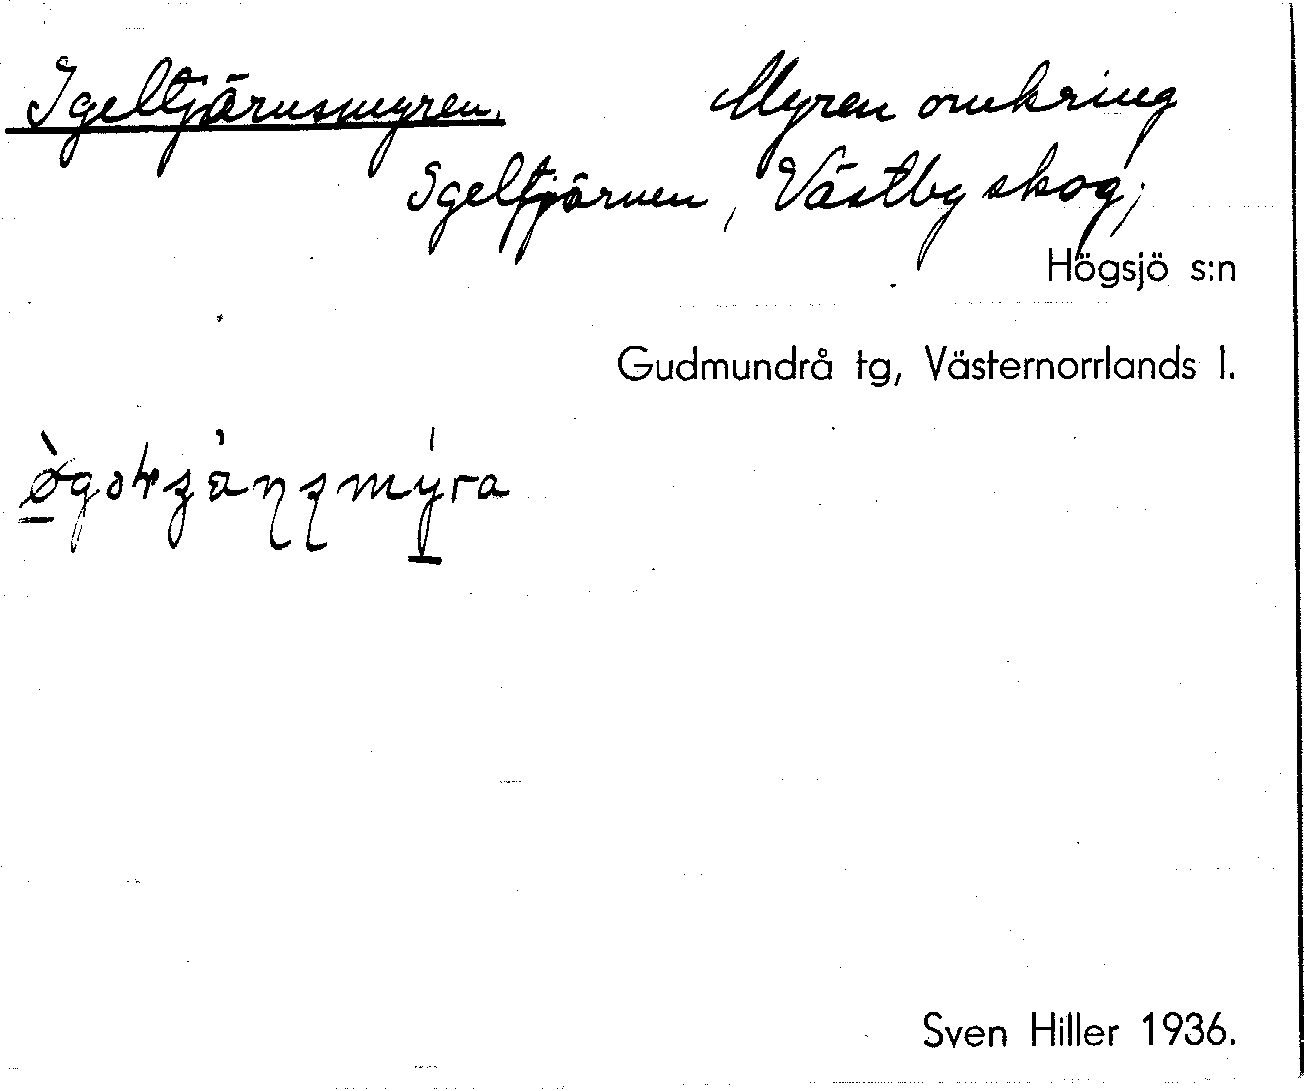 Igeltjärnsmyren. Myren omkring
Igeltjärnen, Västby skog,
Högsjö s:n
Gudmundrå tg, Västernorrlands l.
Sven Hiller 1936.